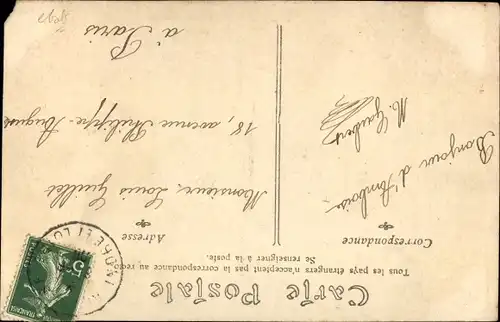 Carte Postale
Tous les pays étrangers n'acceptent pas la correspondance au recto.
Se renseigner à la poste.
Correspondance
Adresse
Bonjour d'Amboise
M. Gaubert
Monsieur Louis Guillet
18, avenue Philippe-Auguste
à Paris
5